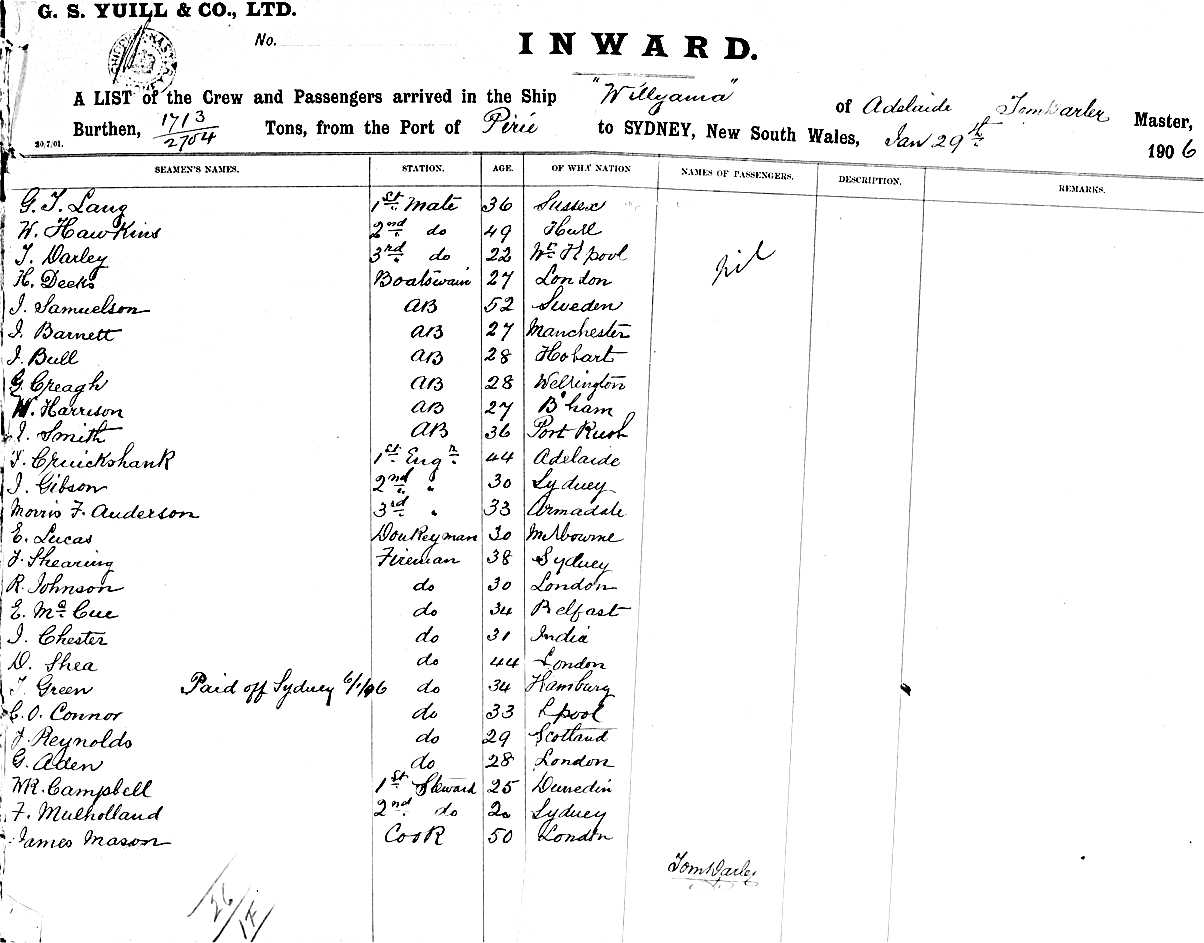 G. S. YUILL & CO., LTD.
No.
INWARD.
A LIST of the Crew and Passengers arrived in the Ship "Willyama" of Adelaide Tom Darley Master,
Burthen, 1713/2704 Tons, from the Port of Pirie to SYDNEY, New South Wales, Jan 29th 1906
20,7,01.
SEAMEN'S NAMES. STATION. AGE. OF WHAT NATION NAMES OF PASSENGERS. DESCRIPTION. REMARKS.
G. T. Lang 1st Mate 36 Sussex
W. Hawkins 2nd do 49 Hull
T. Darley 3rd do 22 Wt. H'pool
nil
H. Deeks Boatswain 27 London
J. Samuelson AB 52 Sweden
J. Barnett AB 27 Manchester
J. Bull AB 28 Hobart
G. Creagh AB 28 Wellington
W. Harrison AB 27 B'ham
J. Smith AB 36 Port Rush
F. Cruickshank 1st Engr. 44 Adelaide
J. Gibson 2nd " 30 Sydney
Morris F. Anderson 3rd " 33 Armadale
E. Lucas Donkeyman 30 Melbourne
J. Shearing Fireman 38 Sydney
R. Johnson do 30 London
E. Mc Cue do 34 Belfast
J. Chester do 31 India
D. Shea do 44 London
T. Green Paid off Sydney 6/1/06 do 34 Hamburg
C. O. Connor do 33 L'pool
J. Reynolds do 29 Scotland
G. Aden do 28 London
WR. Campbell 1st Steward 25 Dunedin
F. Mulholland 2nd do 20 Sydney
James Mason Cook 50 London
Tom Darley
26/17